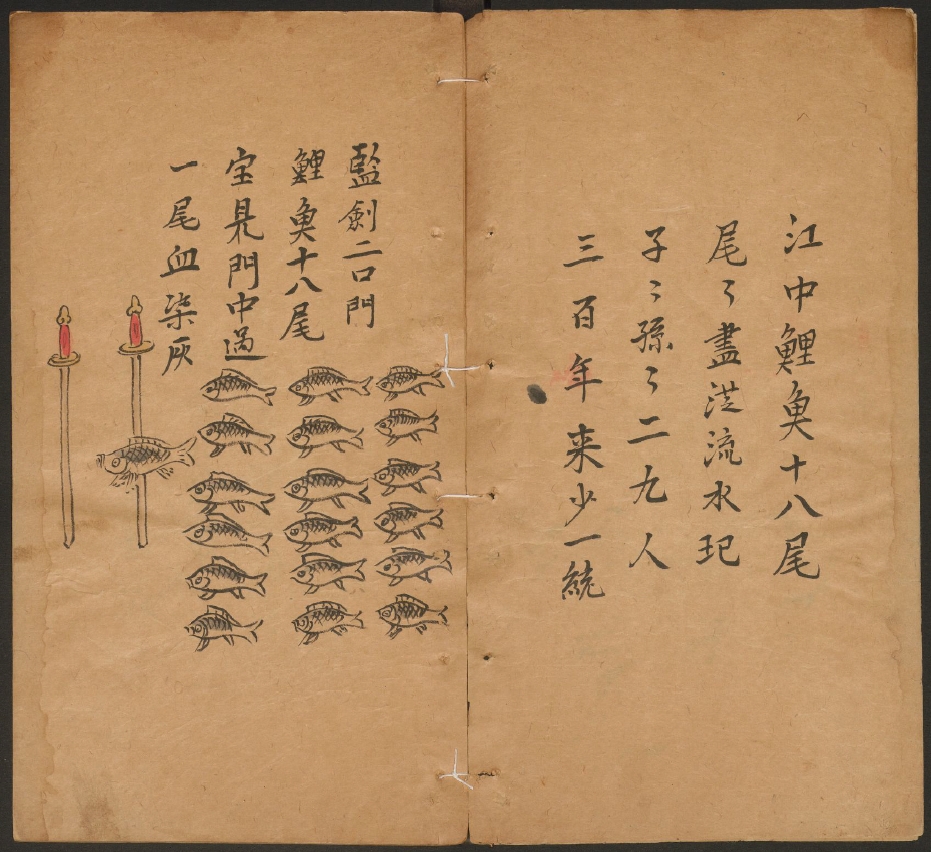 江中鯉魚十八尾
尾々盡淇流水玘
子々孫々二九人
三百年来少一統
藍劍二口門
鯉魚十八尾
宝見門中過
一尾血柒灰